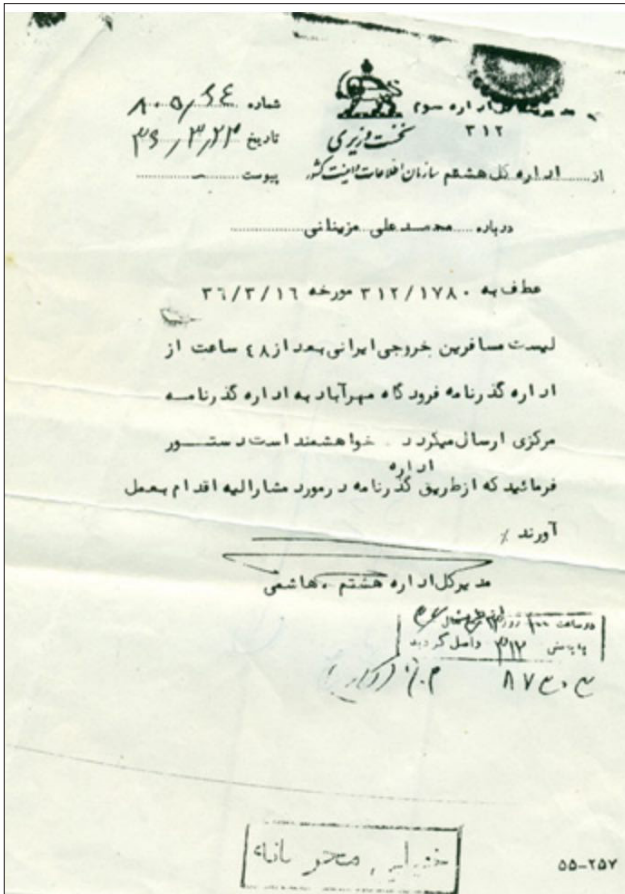 شماره
مدیریت کل اداره سوم
۳۱۲
تاریخ ۳۶٫۳٫۲۳
نخست وزیری
از اداره کل هشتم سازمان اطلاعات و امنیت کشور
پیوست
درباره محمدعلی مزینانی
عطف به ۳۱۲/۱۷۸۰ مورخه ۳۶/۳/۱۶
لیست مسافرین خروجی ایرانی بعد از ۴۸ ساعت از
اداره گذرنامه فرودگاه مهرآباد به اداره گذرنامه
مرکزی ارسال میگردد . خواهشمند است دستور
فرمائید که از طریق اداره گذرنامه در مورد مشارالیه اقدام بعمل
آورند ٪
مدیرکل اداره هشتم . هاشمی
در ساعت روز
بایگانی ۳۱۲ واصل گردید
خیلی محرمانه
۵۵-۲۵۷